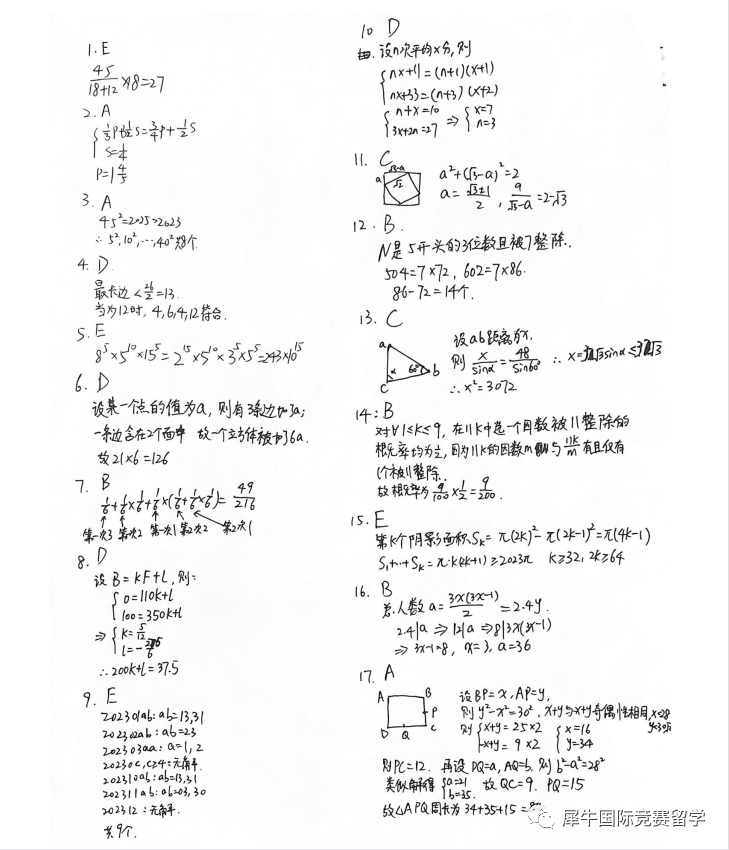 1. E
45/(18+12) ×18=27
2. A
{ 1/3 P+1/2 S=3/4 P+1/2 S
S=1/4
P=1 4/5
3. A
45²=2025>2023
∴ 5², 10², ⋯, 40² 共8个
4. D.
最长边 < 26/2 =13.
当为12时, 4, 6, 4, 12 符合.
5. E
8⁵×5¹⁰×15⁵=2¹⁵×5¹⁰×3⁵×5⁵=243×10¹⁵
6. D
设某一个点的值为a, 则有3条边加了a;
一条边含在2个面中 故一个立方体被加了6a.
故21×6=126
7. B
1/6+1/6×1/6+1/6×(1/6+1/6×1/6)=49/216
第一次3 第一次2 第一次1 第2次2 第2次1
8. D
设B=kF+l, 则:
{ 0=110k+l
100=350k+l
⇒ { k=5/12
∴ 200k+l=37.5
9. E
202301ab: ab=13,31
202302ab: ab=23
202303aa: a=1, 2
20230c, c≥4:
202310ab: ab=13,31
202311ab: ab=03, 30
202312:
共9个.
10 D
设n次平均x分, 则
{ nx+11=(n+1)(x+1)
nx+33=(n+3)(x+2)
{ n+x=10
3x+2n=27 ⇒ { x=7
n=3
11. C
√3-a
a √2
a²+(√3-a)²=2
a=(√3±1)/2, a/(√3-a)=2-√3
12. B.
N是5开头的3位数且被7整除.
504=7×72, 602=7×86.
86-72=14个.
13. C
a b c α 60°
设ab距离为x.
则 x/sinα=48/sin60°
∴ x²=3072
14: B
对∀1≤k≤9, 在11k中选一个因数被11整除的
概率均为1/2, 因为11k的因数m与11k/m有且仅有
1个被11整除.
故概率为 9/100×1/2=9/200.
15. E
第k个阴影面积Sk=π(2k)²-π(2k-1)²=π(4k-1)
S₁+⋯+Sk=π·k(2k+1)≥2023π k≥32, 2k≥64
16. B
总人数a=3x(3x-1)/2=2.4y.
2.4|a ⇒ 12|a ⇒ 8|3x(3x-1)
⇒ 3x-1=8, x=3, a=36
17. A
A B P C Q D
设BP=x, AP=y,
则y²-x²=30², x+y与-x+y奇偶性相同, x<28
则 { x+y=25×2
-x+y=9×2 { x=16
y=34
则PC=12. 再设DQ=a, AQ=b. 则b²-a²=28²
类似解得 { a=21
b=35. 故QC=9. PQ=15
故△APQ周长为34+35+15=
犀牛国际竞赛留学